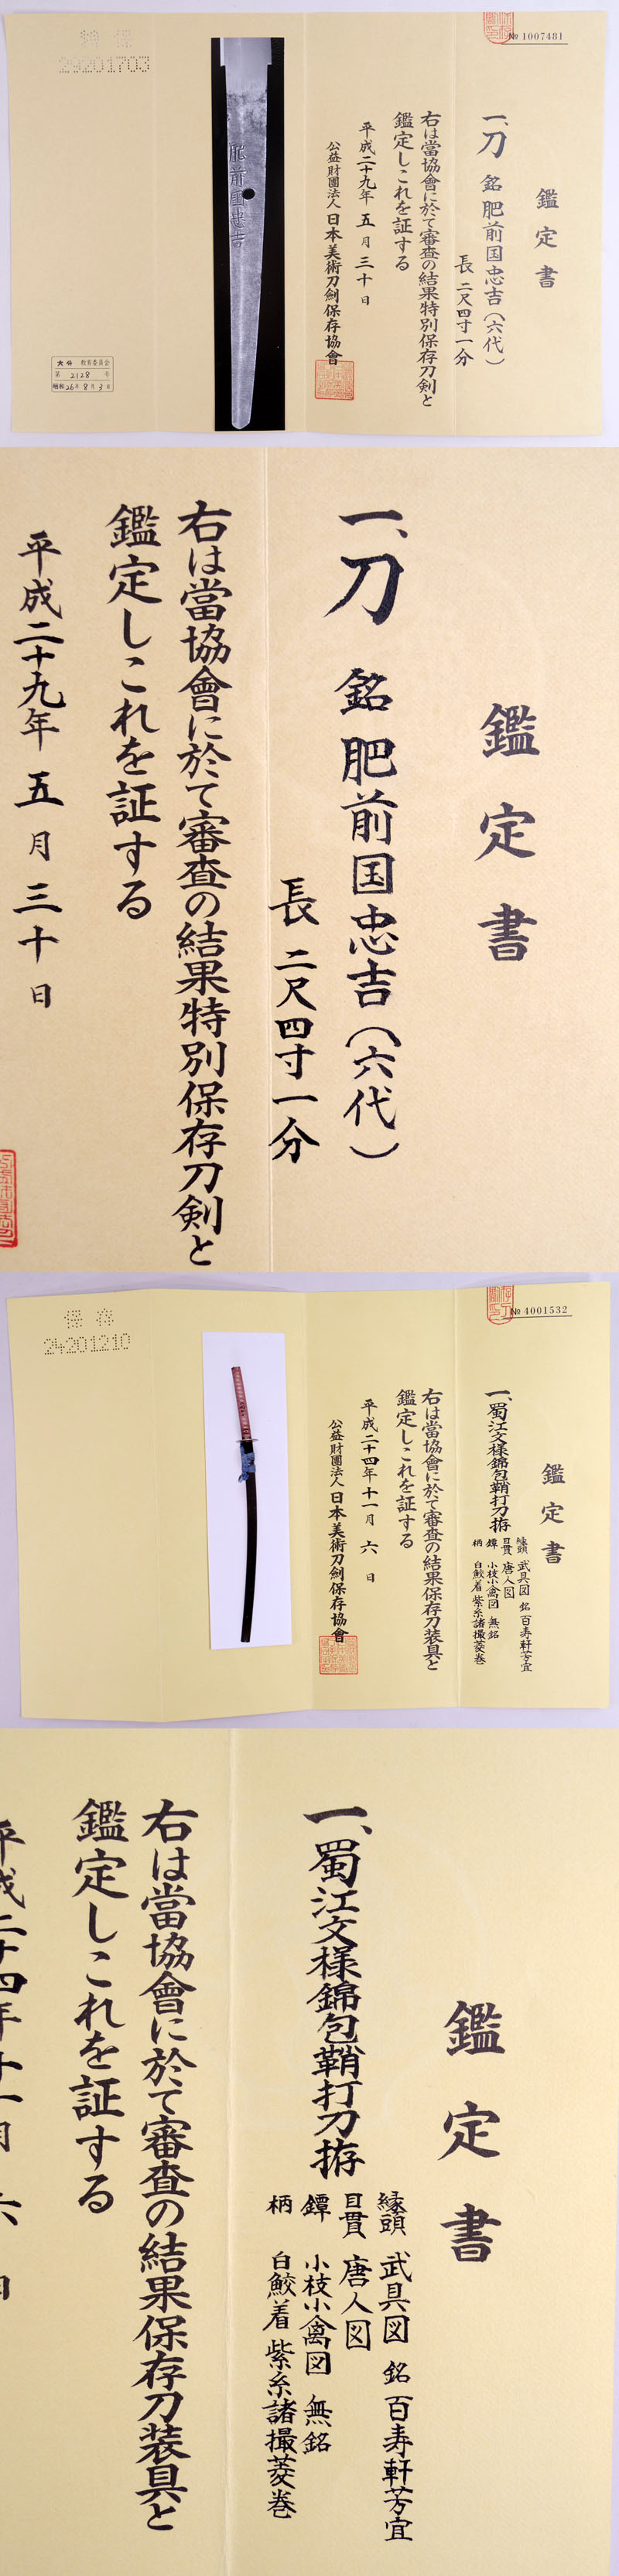 № 1007481
鑑定書
一、刀 銘 肥前国忠吉(六代)
長 二尺四寸一分
右は當協會に於て審査の結果特別保存刀剣と
鑑定しこれを証する
平成二十九年 五月 三十日
公益財團法人 日本美術刀劍保存協會
肥前国忠吉
特保
29201703
教育委員会
第 2128 号
昭和26年8月3日
鑑定書
一、刀 銘 肥前国忠吉(六代)
長 二尺四寸一分
右は當協會に於て審査の結果特別保存刀剣と
鑑定しこれを証する
平成二十九年 五月 三十日
№ 4001532
鑑定書
一、蜀江文様錦包鞘打刀拵
縁頭 武具図 銘 百寿軒芳宜
目貫 唐人図
鐔 小枝小禽図 無銘
柄 白鮫着 紫糸諸撮菱巻
右は當協會に於て審査の結果保存刀装具と
鑑定しこれを証する
平成二十四年 十一月 六 日
公益財團法人 日本美術刀劍保存協會
保存
24201210
鑑定書
一、蜀江文様錦包鞘打刀拵
縁頭 武具図 銘 百寿軒芳宜
目貫 唐人図
鐔 小枝小禽図 無銘
柄 白鮫着 紫糸諸撮菱巻
右は當協會に於て審査の結果保存刀装具と
鑑定しこれを証する
平成二十四年 十一月 六 日